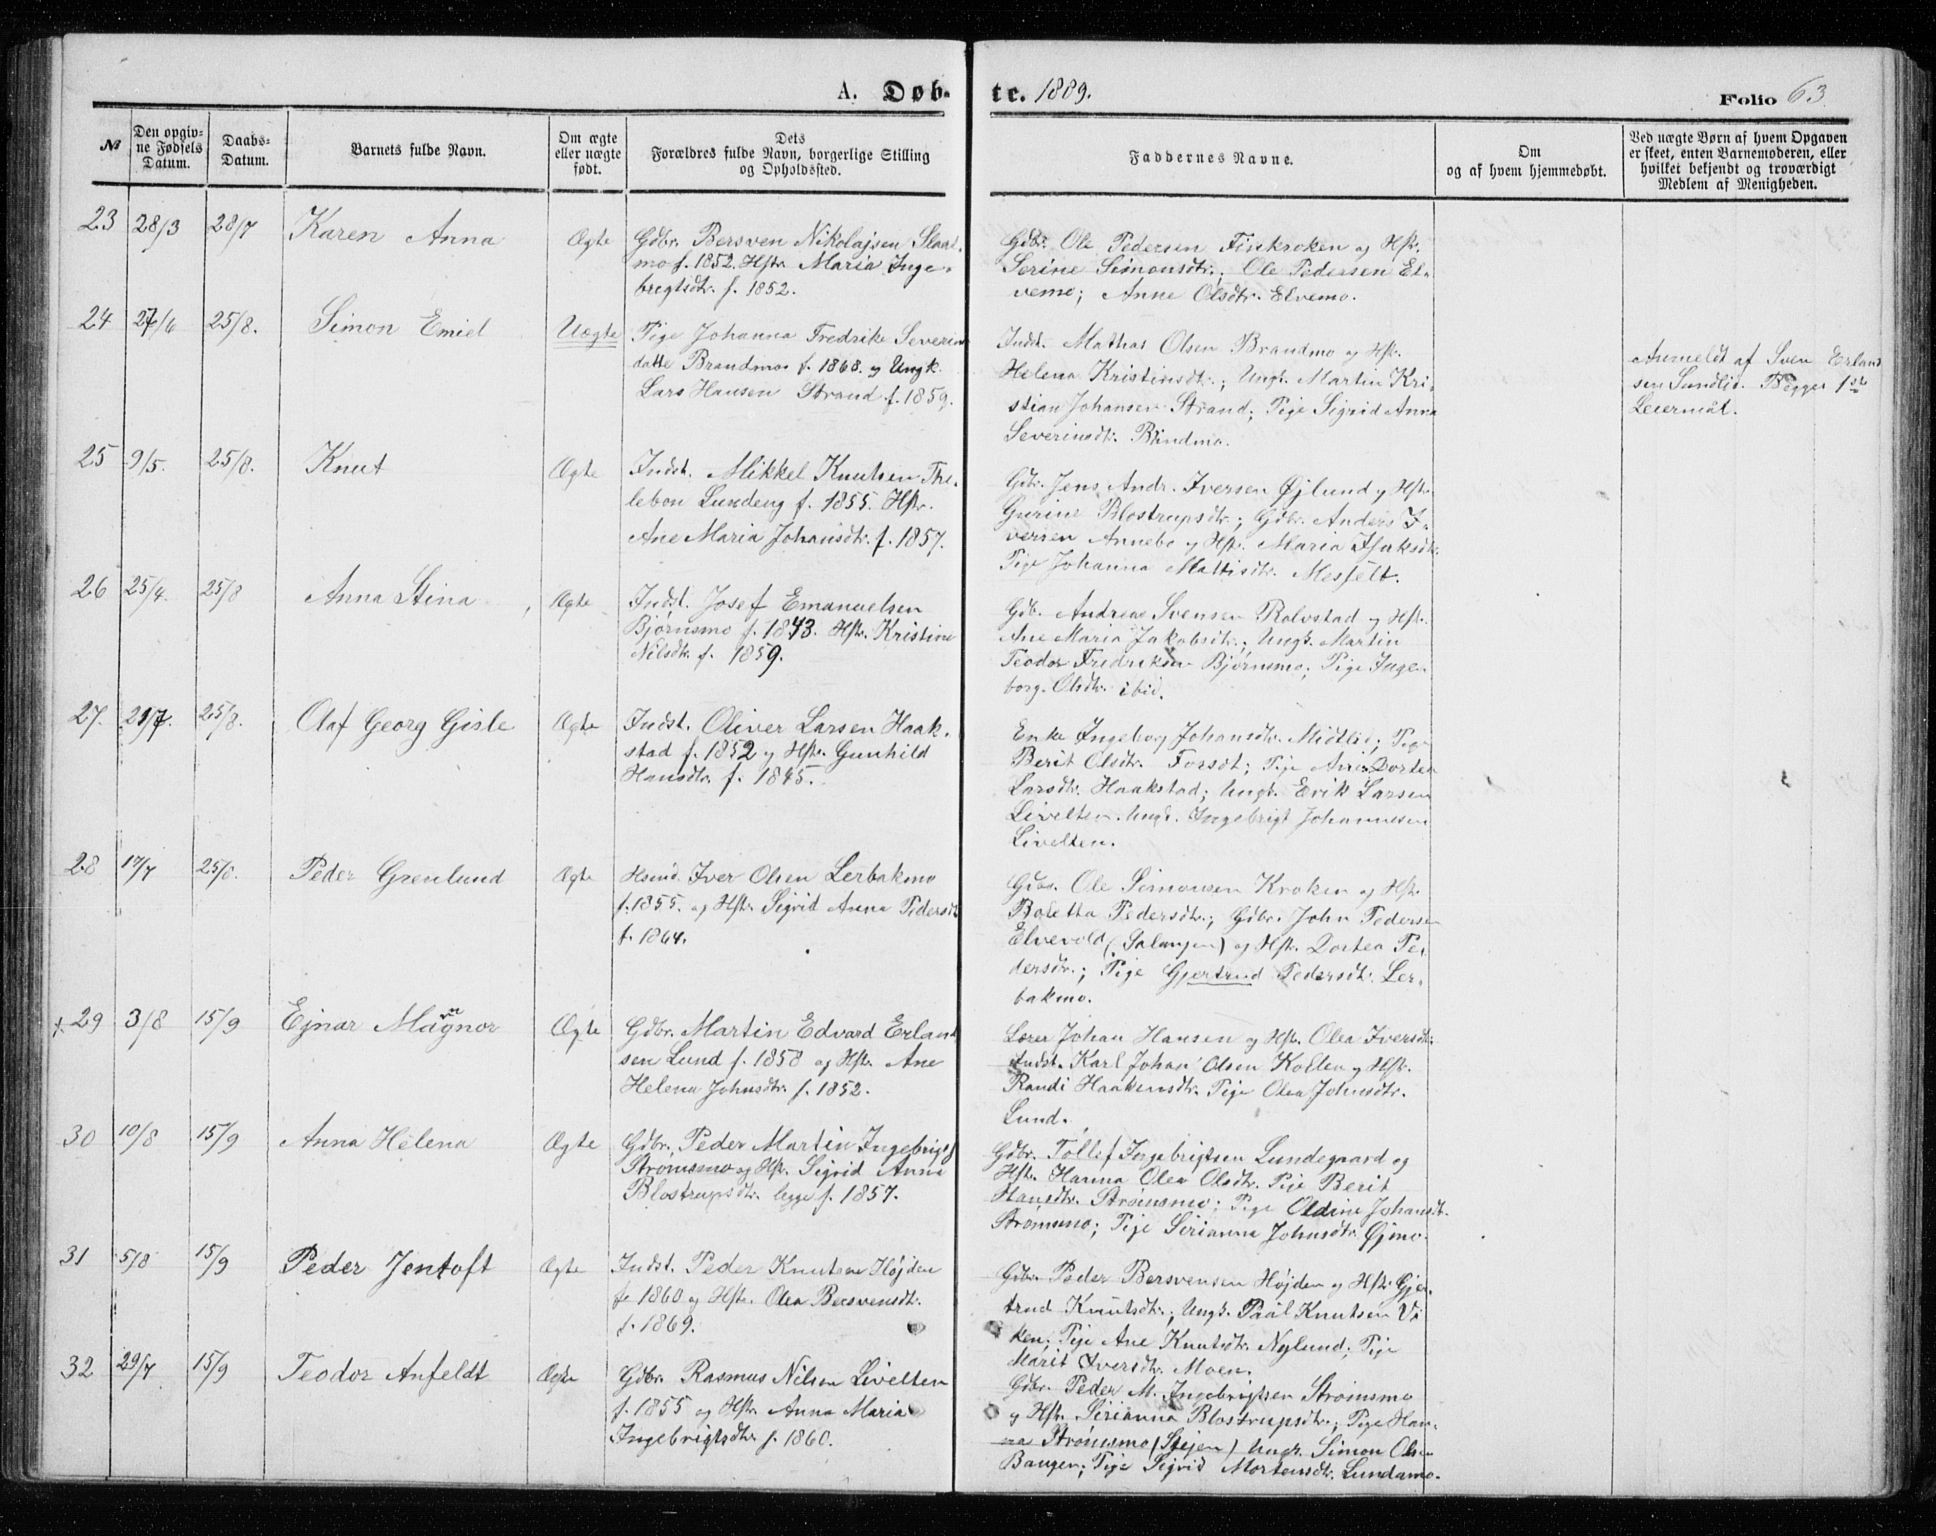 A. Døb-
te. 1889.
Folio 63
№
Den opgiv-
ne Fødsels
Datum.
Daabs-
Datum.
Barnets fulde Navn.
Om ægte
eller uægte
født.
Dets
Forældres fulde Navn, borgerlige Stilling
og Opholdssted.
Faddernes Navne.
Om
og af hvem hjemmedøbt.
Ved uægte Børn af hvem Opgaven
er skeet, enten Barnemoderen, eller
hvilket bekjendt og troværdigt
Medlem af Menigheden.
23 28/3 28/7 Karen Anna Ægte
Gdbr. Bersven Nikolajsen Slaat-
mo f. 1852. Hstr. Maria Inge-
brigtsdtr. f. 1852.
Gdbr. Ole Pedersen Finkroken og Hst.
Serine Simonsdtr.; Ole Pedersen El-
vemo; Anne Olsdtr. Elvemo.
24 27/6 25/8. Simon Emiel Uægte
Pige Johanna Fredrike Severins
datte Brandmo f. 1868. og Ungk.
Lars Hansen Strand f. 1859.
Indst. Mathas Olsen Brandmo og Hst.
Helena Kristinsdtr.; Ungk. Martin Kri-
stian Johansen Strand; Pige Sigrid Anna
Severinsdtr. Brndmo.
Anmeldt af Sven Erland
sen Sundlid. Begges 1ste
Leiermål.
25 9/5. 25/8. Knut Ægte
Indst. Mikkel Knutsen Tre-
lebon Lundeng f. 1855. Hstr.
Ane Maria Johansdtr. f. 1857.
Gdbr. Jens Andr. Iversen Øjlund og Hst.
Gurine Blostrupsdtr.; Gdbr. Anders I-
versen Annebo og Hst. Maria Isaksdtr.
Pige Johanna Mattisdtr. Mesfelt.
26 25/4. 25/8 Anna Stina Ægte
Indst. Josef Emanuelsen
Bjørnsmo f. 1843. Hstr. Kristine
Nilsdtr. f. 1859.
Gdb. Andreas Svensen Rolvstad og Hst.
Ane Maria Jakobsdtr.; Ungk. Martin
Teodor Fredriksen Bjørnsmo; Pige Inge-
borg. Olsdtr. ibid.
27. 21/7. 25/8. Olaf Georg Gisle Ægte
Indst. Oliver Larsen Haak-
stad f. 1852 og Hst. Gunhild
Hansdtr. f. 1845.
Enke Ingeborg Johansdtr. Midtlid; Pige
Berit Olsdtr. Forsdt; Pige Ane Dortea
Larsdtr. Haakstad; Ungk. Erik Larsen
Livelten. Ungk. Ingebrigt Johannesen
Livelten.
28 17/7 25/8. Peder Grenlund Ægte
Hsmd. Iver Olsen Lerbakmo
f. 1855. og Hst. Sigrid Anna Pedersdtr
f. 1864.
Gdbr. Ole Simonsen Kroken og Hst.
Boletta Pedersdtr.; Gdbr. John Pedersen
Elvevold (Salangen) og Hst. Dortea Pe-
dersdtr.; Pige Gjertrud Pedersdtr. Ler-
bakmo.
29 3/8 15/9 Ejnar Magnor Ægte
Gdbr. Martin Edvard Erland
sen Lund f. 1858 og Hst. Ane
Helena Johnsdtr. f. 1852.
Lærer Johan Hansen og Hst. Olea Iversdtr.
Indst. Karl Johan Olsen Kollen og Hst.
Randi Haakensdtr. Pige Olea Johnsdtr.
Lund.
30 10/8 15/9 Anna Helena Ægte
Gdbr. Peder Martin Ingebrigts
Strømsmo og Hst. Sigrid Anna
Blostrupsdtr. begge f. 1857.
Gdbr. Tollef Ingebrigtsen Lundegaard og
Hst. Hanna Olea Olsdtr. Pige Berit
Hansdtr. Strømsmo; Pige Oldine Johansdt.
Strømsmo; Pige Serianna Johnsdtr. Øjmo.
31 5/8 15/9 Peder Jentoft Ægte
Indst. Peder Knutsen Højden
f. 1860 og Hst. Olea Bersvensdtr.
f. 1869.
Gdbr. Peder Bersvensen Højden og Hst. Gjer-
trud Knutsdtr.; Ungk. Paal Knutsen Vi
ken; Pige Ane Knutsdtr. Nylund; Pige
Marit Iversdtr. Moen.
32 29/7 15/9 Teodor Anfeldt Ægte
Gdbr. Rasmus Nilsen Livelten
f. 1855 og Hst. Anna Maria
Ingebrigtsdtr. f. 1860.
Gdbr. Peder M. Ingebrigtsen Strømsmo
og Hst. Serianna Blostrupsdtr.; Pige Han-
na Strømsmo (Stejen) Ungk. Simon Olsen
Baugen; Pige Sigrid Mortensdtr. Lundamo.